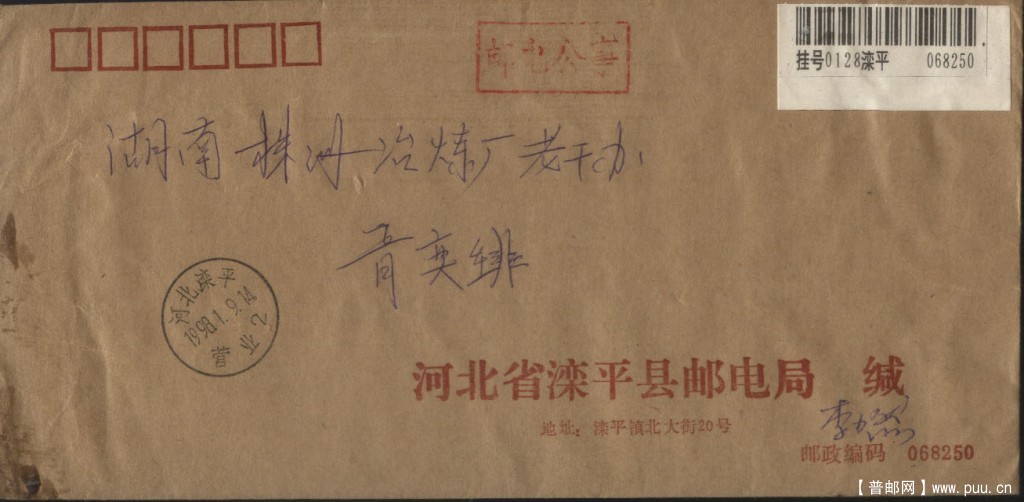 邮电公事
挂号0128滦平 068250
湖南株洲冶炼厂老干办
河北滦平
1998.1.9.14
营业2
河北省滦平县邮电局 缄
地址：滦平镇北大街20号
邮政编码 068250
【普邮网】www.puu.cn